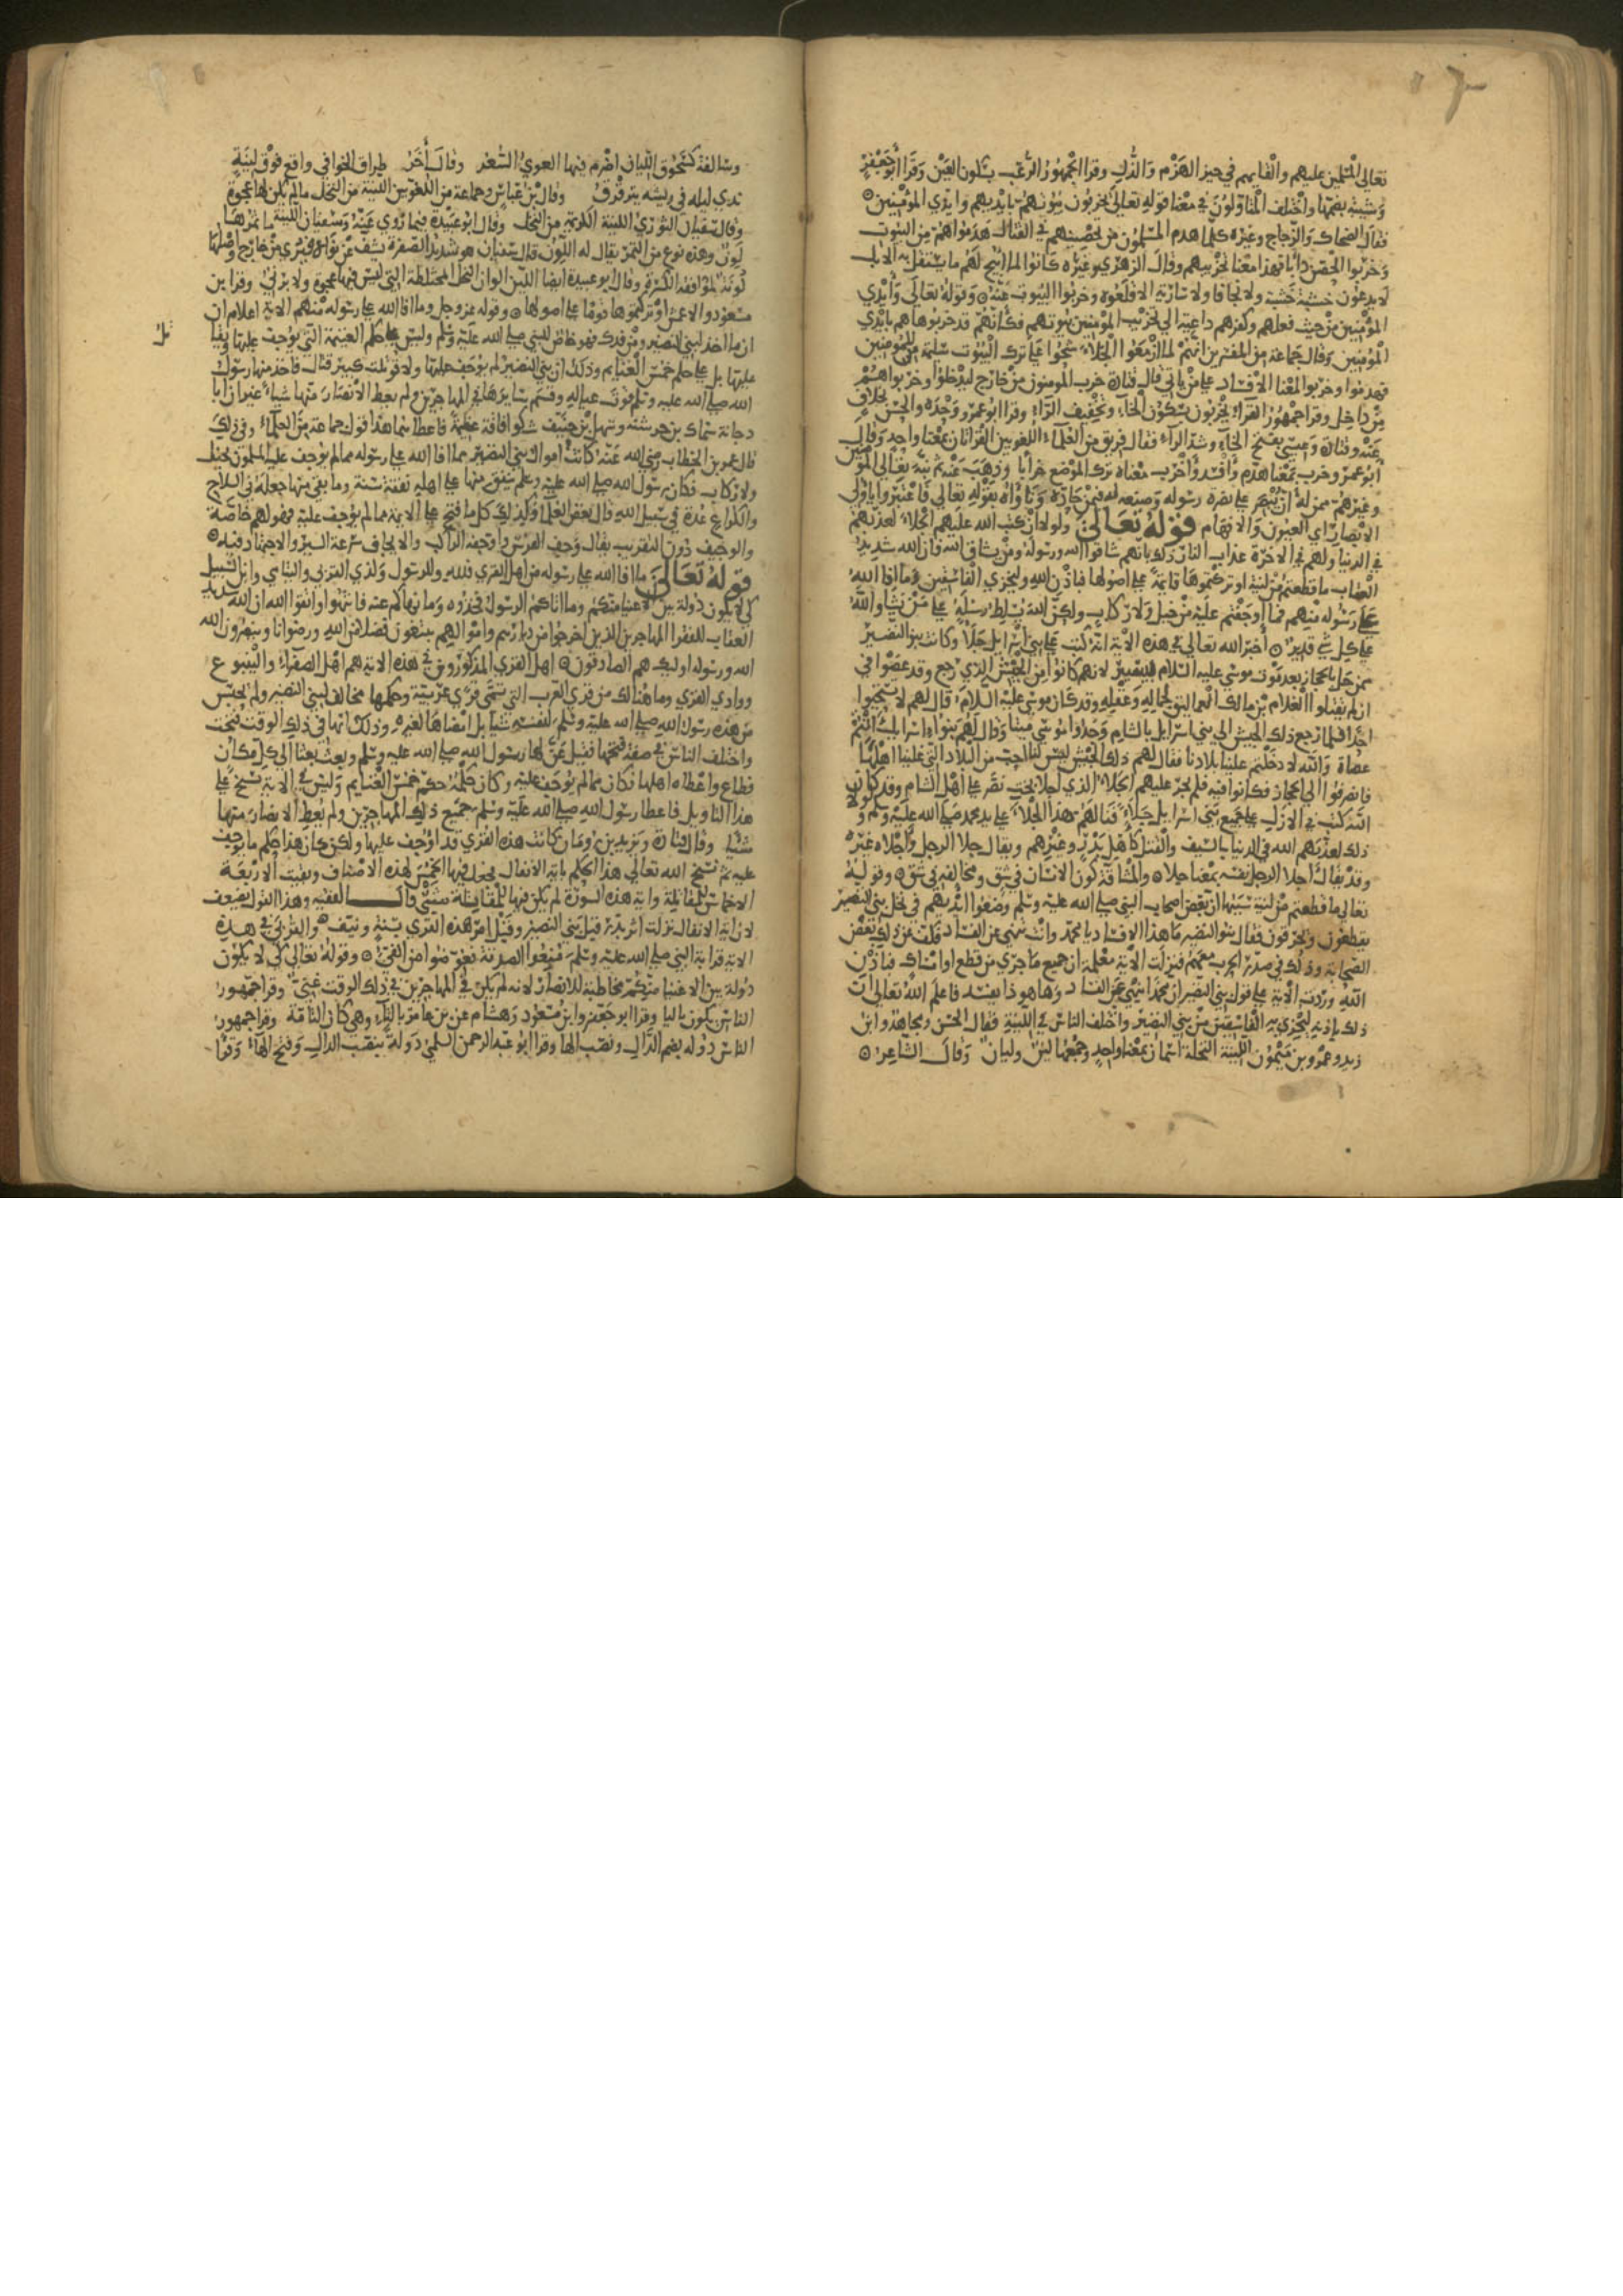 تعالى المسلمين عليهم والقايهم في حيز الهزم والذل وقرا الجمهور الرعب بسكون العين وقرا ابو جعفر
وشيبة بضمها واختلف المتاولون في معنا قوله تعالى يخربون بيوتهم بايديهم وايدي المؤمنين
فقال الضحاك والزجاج وغيره كلما هدم المسلمون من تحصينهم في القتال هدموا هم من البيوت
وخربوا الحصن دابا فهذا معنا تخريبهم وقال الزهري وغيره كانوا لما ابيح لهم ما يستقل به الابل
لا يدعون خشبة حسنة ولا نجافا ولا سارية الا قلعوه وخربوا البيوت عنه وقوله تعالى وايدي
المؤمنين من حيث فعلهم وكفرهم داعية الى تخريب المؤمنين بيوتهم فكانهم قد خربوها هم بايدي
المؤمنين وقال جماعة من المفسرين انهم لما ازمعوا الجلاء شحوا على ترك البيوت سليمة للمؤمنين
فهدموا وخربوا لمعنا الافساد على من ياتي قال قتادة خرب المومنون من خارج ليدخلوا وخربوا هم
من داخل وقرا جمهور القراء يخربون بسكون الخاء وتخفيف الراء وقرا ابو عمرو وحده والحسن بخلاف
عنه وقتادة وعيسى بفتح الخاء وشد الراء فقال فريق من العلماء اللغويين القراتان بمعنا واحد وقال
ابو عمرو خرب بمعنا هدم وافسد واخرب معناه ترك الموضع خرابا وذهب عنه ثم نبه تعالى المؤمنين
وغيرهم ممن له ان ينظر على نصرة رسوله وصنعه له فيمن حاده وناواه بقوله تعالى فاعتبروا ياولي
الابصار اي العيون والافهام قوله تعالى ولولا ان كتب الله عليهم الجلاء لعذبهم
في الدنيا ولهم في الاخرة عذاب النار ذلك بانهم شاقوا الله ورسوله ومن يشاق الله فان الله شديد
العقاب ما قطعتم من لينة او تركتموها قايمة على اصولها فباذن الله وليخزي الفاسقين وما افا الله
على رسوله منهم فما اوجفتم عليه من خيل ولا ركاب ولكن الله يسلط رسله على من يشا والله
على كل شي قدير اخبر الله تعالى في هذه الاية انه كتب على بني اسرايل جلاء وكانت بنو النضير
ممن حل بالحجاز بعد موت موسى عليه السلام بيسير لانهم كانوا من الجيش الذي رجع وقد عصوا في
ان لم يقتلوا الغلام بن مالك العماليق لجماله وعقله وقد كان موسى عليه السلام قال لهم لا تستحيوا
احدا فلما رجع ذلك الجيش الى بني اسرايل بالشام وجدوا موسى ميتا وقال لهم بنوا اسرايل انتم
عصاة والله لا دخلتم علينا بلادنا فقال لهم ذلك الجيش ليس لنا احب من البلاد التي غلبنا اهلها
فانصرفوا الى الحجاز فكانوا فيه فلم يجر عليهم الجلاء الذي اجلا بخت نصر على اهل الشام وقد كان
الله كتب في الازل على جميع بني اسرايل جلاء فنالهم هذا الجلاء على يد محمد صلى الله عليه وسلم ولولا
ذلك لعذبهم الله في الدنيا بالسيف والقتل كاهل بدر وغيرهم ويقال جلا الرجل واجلاه غيره
وقد يقال اجلا الرجل نفسه بمعنا جلا والمشاقة كون الانسان في شق ومخالفه في شق وقوله
تعالى ما قطعتم من لينة سببها ان بعض اصحاب النبي صلى الله عليه وسلم وضعوا ايديهم في نخل بني النضير
يقطعون ويحرقون فقال بنو النضير ما هذا الافساد يا محمد وانت تنهى عن الفساد فكف عن ذلك بعض
الصحابة وذلك في صدر الحرب معهم فنزلت الاية معلمة ان جميع ما جرى من قطع او امساك فباذن
الله وردت الاية على قول بني النضير ان محمدا ينهى عن الفساد وها هو ذا يفسد فاعلم الله تعالى ان
ذلك باذنه ليخزي به الفاسقين من بني النضير واختلف الناس في اللينة فقال الحسن ومجاهد وابن
زيد وعمرو بن ميمون اللينة النخلة اسمان بمعنا واحد وجمعها لين وليان وقال الشاعر
وسالفة كسحوق الليان اضرم فيها الغوي السعر وقال اخر طراق الخوافي واقع فوق لينة
ندى ليله في ريشه يترقرق وقال بن عباس وجماعة من اللغويين اللينة من النخل مالم يكن لها عجوة
وقال سفيان الثوري اللينة الكريمة من النخل وقال ابو عبيدة فيما روي عنه وسفيان اللينة ما تمرها
لون وهذه نوع من التمر يقال له اللون قال سفيان هو شديد الصفرة يشف عن نواه فيرى من خارج واصلها
لونة لموافقة الكسرة وقال ابو عبيدة ايضا اللين الوان النخل المختلطة التي ليس فيها عجوة ولا برني وقرا بن
مسعود والاعمش او تركتموها قوما على اصولها وقوله عز وجل وما افا الله على رسوله منهم الاية اعلام ان
ان ما اخذ لبني النضير ومن فدك فهو خاص للنبي صلى الله عليه وسلم وليس على حكم الغنيمة التي يوجف عليها ويقا
عليها بل على حكم خمس الغنايم وذلك ان بني النضير لم يوجف عليها ولا قوتلت كبير قتال فاخذ منها رسول
الله صلى الله عليه وسلم قوت عياله وقسم سايرها في المهاجرين ولم يعط الانصار منها شياء غير ان ابا
دجانة سماك بن خرشة وسهل بن حنيف شكوا فاقة عظيمة فاعطاهما هذا قول جماعة من العلماء وفي ذلك
قال عمر بن الخطاب رضي الله عنه كانت اموال بني النضير مما افا الله على رسوله مما لم يوجف عليه المسلمون بخيل
ولا ركاب فكان رسول الله صلى الله عليه وسلم ينفق منها على اهله نفقة سنة وما بقي منها جعله في السلاح
والكراع عدة في سبيل الله قال بعض العلماء وكذلك كل ما فتح على الايمة مما لم يوجف عليه فهو لهم خاصة
والوجيف دون التقريب يقال وجف الفرس واوجفه الراكب والايجاف سرعة السير والاجتهاد فيه
قوله تعالى ما افا الله على رسوله من اهل القرى فلله وللرسول ولذي القربى واليتامى وابن السبيل
كي لا يكون دولة بين الاغنيا منكم وما اتاكم الرسول فخذوه وما نهاكم عنه فانتهوا واتقوا الله ان الله شديد
العقاب للفقرا المهاجرين الذين اخرجوا من ديارهم واموالهم يبتغون فضلا من الله ورضوانا وينصرون الله
الله ورسوله اوليك هم الصادقون اهل القرى المذكورون في هذه الاية هم اهل الصفراء والينبوع
ووادي القرى وما هنالك من قرى العرب التي تسمى قرى عربية وحكمها مخالف لبني النضير ولم يحبس
من هذه رسول الله صلى الله عليه وسلم لنفسه شيا بل امضاها لغيره وذلك انها في ذلك الوقت فتحت
واختلف الناس في صفة فتحها فقيل عن لها رسول الله صلى الله عليه وسلم وبعث بعثا الى كل مكان
فطاع واعطاه اهلها فكان مما لم يوجف عليه وكان حكمه حكم خمس الغنايم وليس في الاية نسخ على
هذا التاويل فاعطا رسول الله صلى الله عليه وسلم جميع ذلك المهاجرين ولم يعط الانصار منها
شيا وقال قتادة ويزيد بن رومان كانت هذه القرى قد اوجف عليها ولكن كان هذا حكم ما يوجف
عليه ثم نسخ الله تعالى هذا الحكم باية الانفال فجعل فيها الخمس لهذه الاصناف وبقيت الاربعة
الاخماس للمقاتلة واية هذه السورة لم يكن فيها للمقاتلة شي قال الفقيه وهذا القول يضعف
لان اية الانفال نزلت اثر بدر قبل بني النضير وقبل امر هذه القرى بسنة ونيف والقربى في هذه
الاية قرابة النبي صلى الله عليه وسلم منعوا الصدقة فعوضوا من الفيء وقوله تعالى كي لا يكون
دولة بين الاغنيا منكم مخاطبة للانصار لانه لم يكن في المهاجرين في ذلك الوقت غني وقرا جمهور
الناس يكون باليا وقرا ابو جعفر وابن مسعود وهشام عن بن عامر بالتاء وهي كان التامة وقرا جمهور
الناس دوله بضم الدال ونصب الها وقرا ابو عبد الرحمن السلمي دولة بنصب الدال وفتح الهاء وقرا